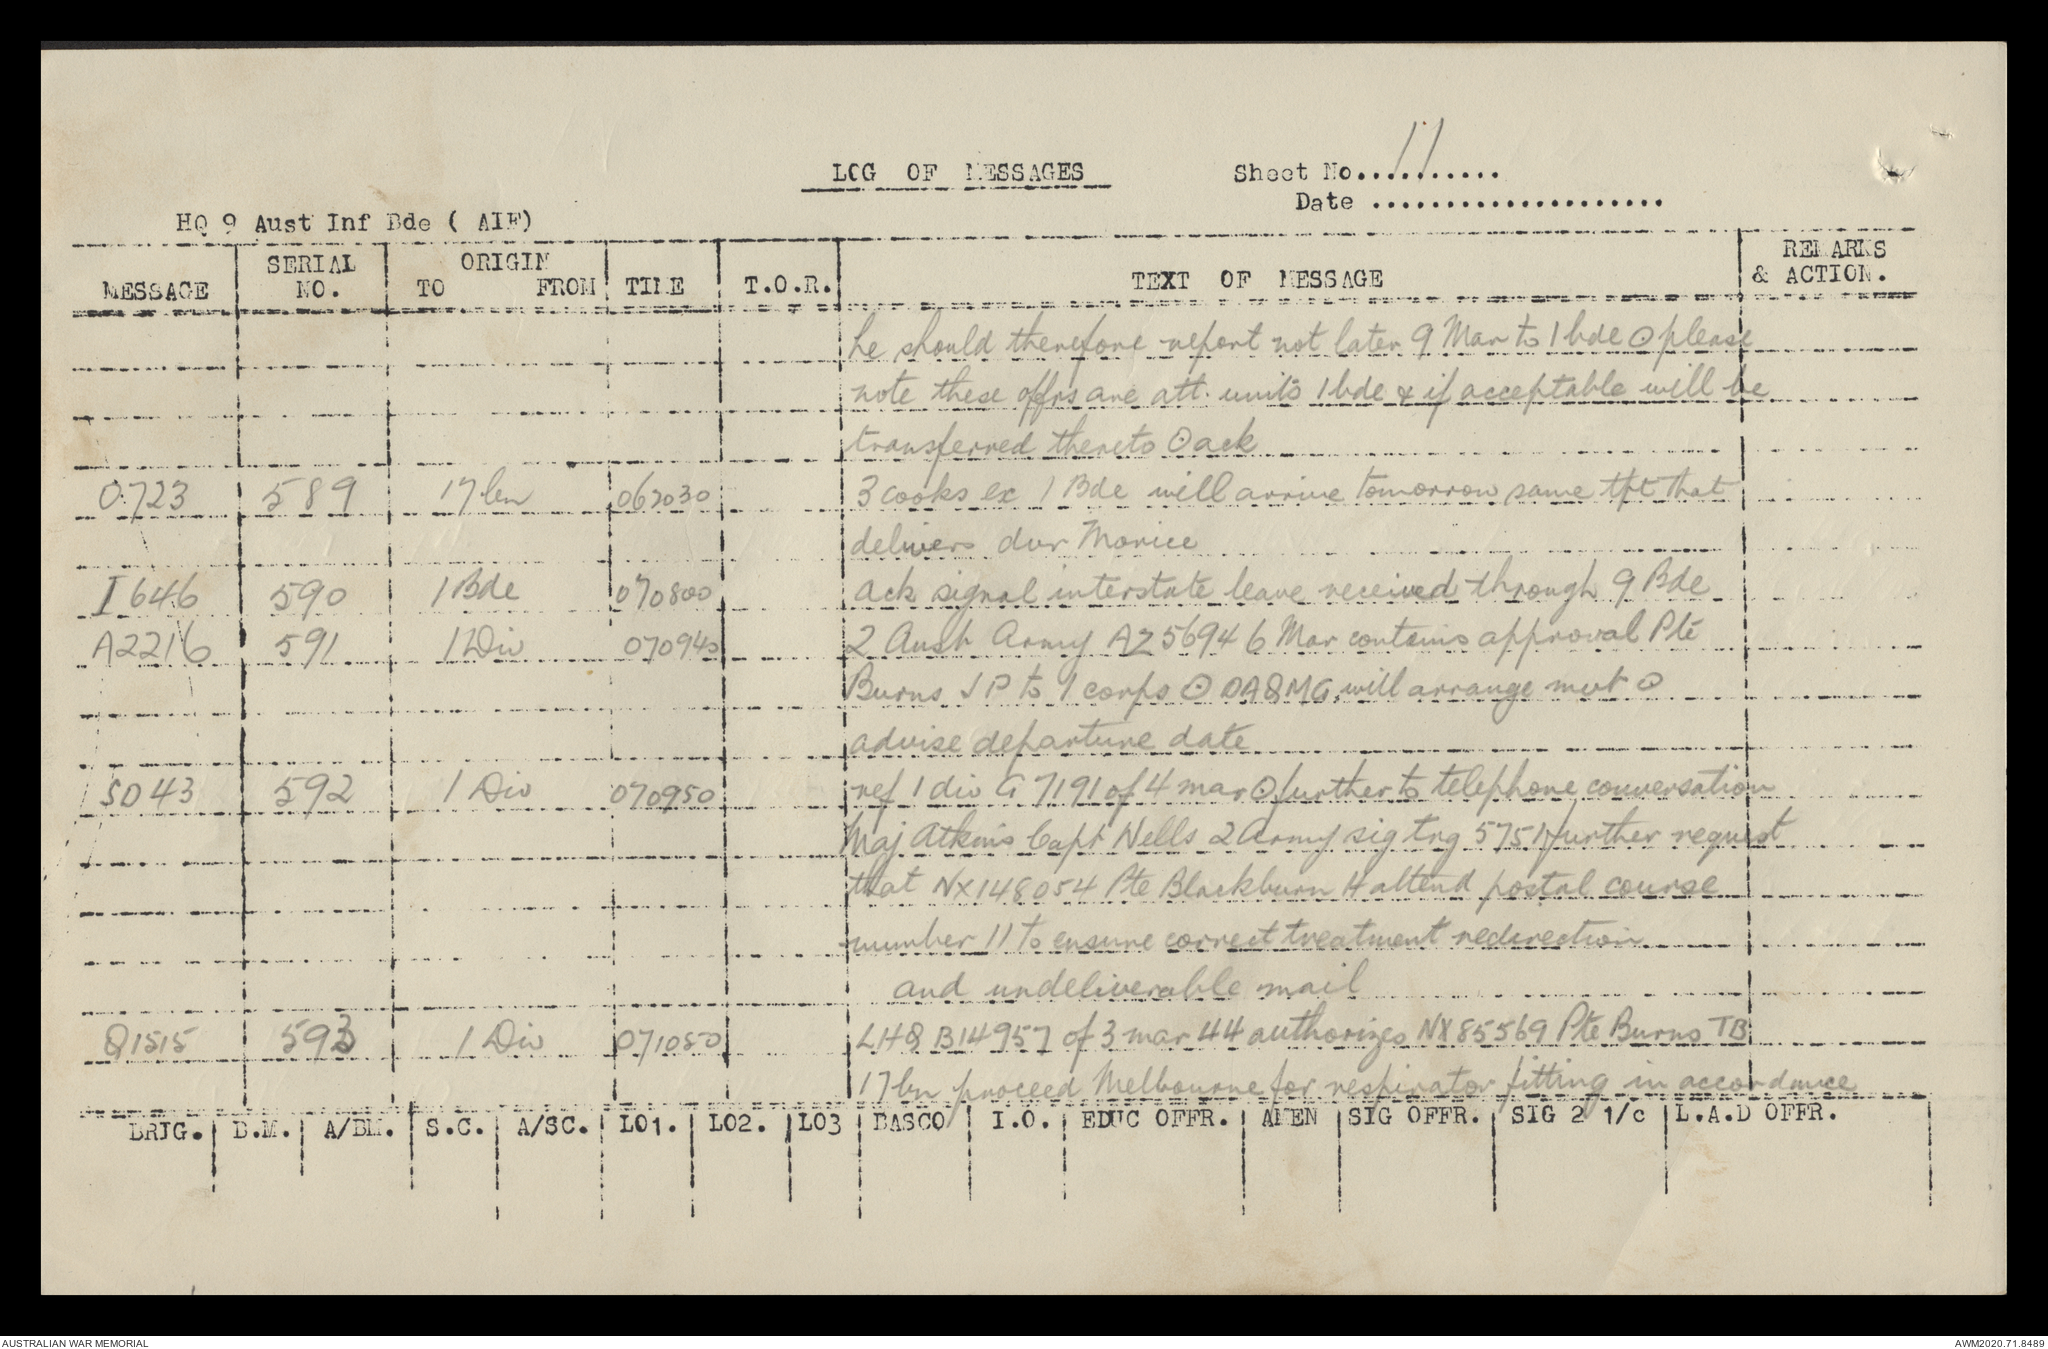 LOG OF MESSAGES
Sheet No. 11
Date
HQ 9 Aust Inf Bde ( AIF)
MESSAGE SERIAL NO. ORIGIN TO FROM TIME T.O.R. TEXT OF MESSAGE REMARKS & ACTION.
he should therefore report not later 9 Mar to 1 bde ⊙ please
note these offrs are att. units 1 bde & if acceptable will be
transferred thereto ⊙ ack
O723 589 17 bn 062030 3 cooks ex 1 Bde will arrive tomorrow same tpt that
delivers dvr Morice
I 646 590 1 Bde 070800 ack signal interstate leave received through 9 Bde
A2216 591 1 Div 070940 2 Aust Army AZ5694 6 Mar contains approval Pte
Burns J P to 1 corps ⊙ DA&MG will arrange mvt ⊙
advise departure date
SD43 592 1 Div 070950 ref 1 div G 7191 of 4 mar ⊙ further to telephone conversation
Maj Atkins Capt Nells 2 Army sig trg 5751 further request
that NX148054 Pte Blackburn H attend postal course
number 11 to ensure correct treatment redirection
and undeliverable mail
Q1515 593 1 Div 071050 LHQ B14957 of 3 mar 44 authorizes NX85569 Pte Burns TB
17 bn proceed Melbourne for respirator fitting in accordance
BRIG. B.M. A/BM. S.C. A/SC. LO1. LO2. LO3 BASCO I.O. EDUC OFFR. AMEN SIG OFFR. SIG 2 1/c L.A.D OFFR.
AUSTRALIAN WAR MEMORIAL AWM2020.71.8489